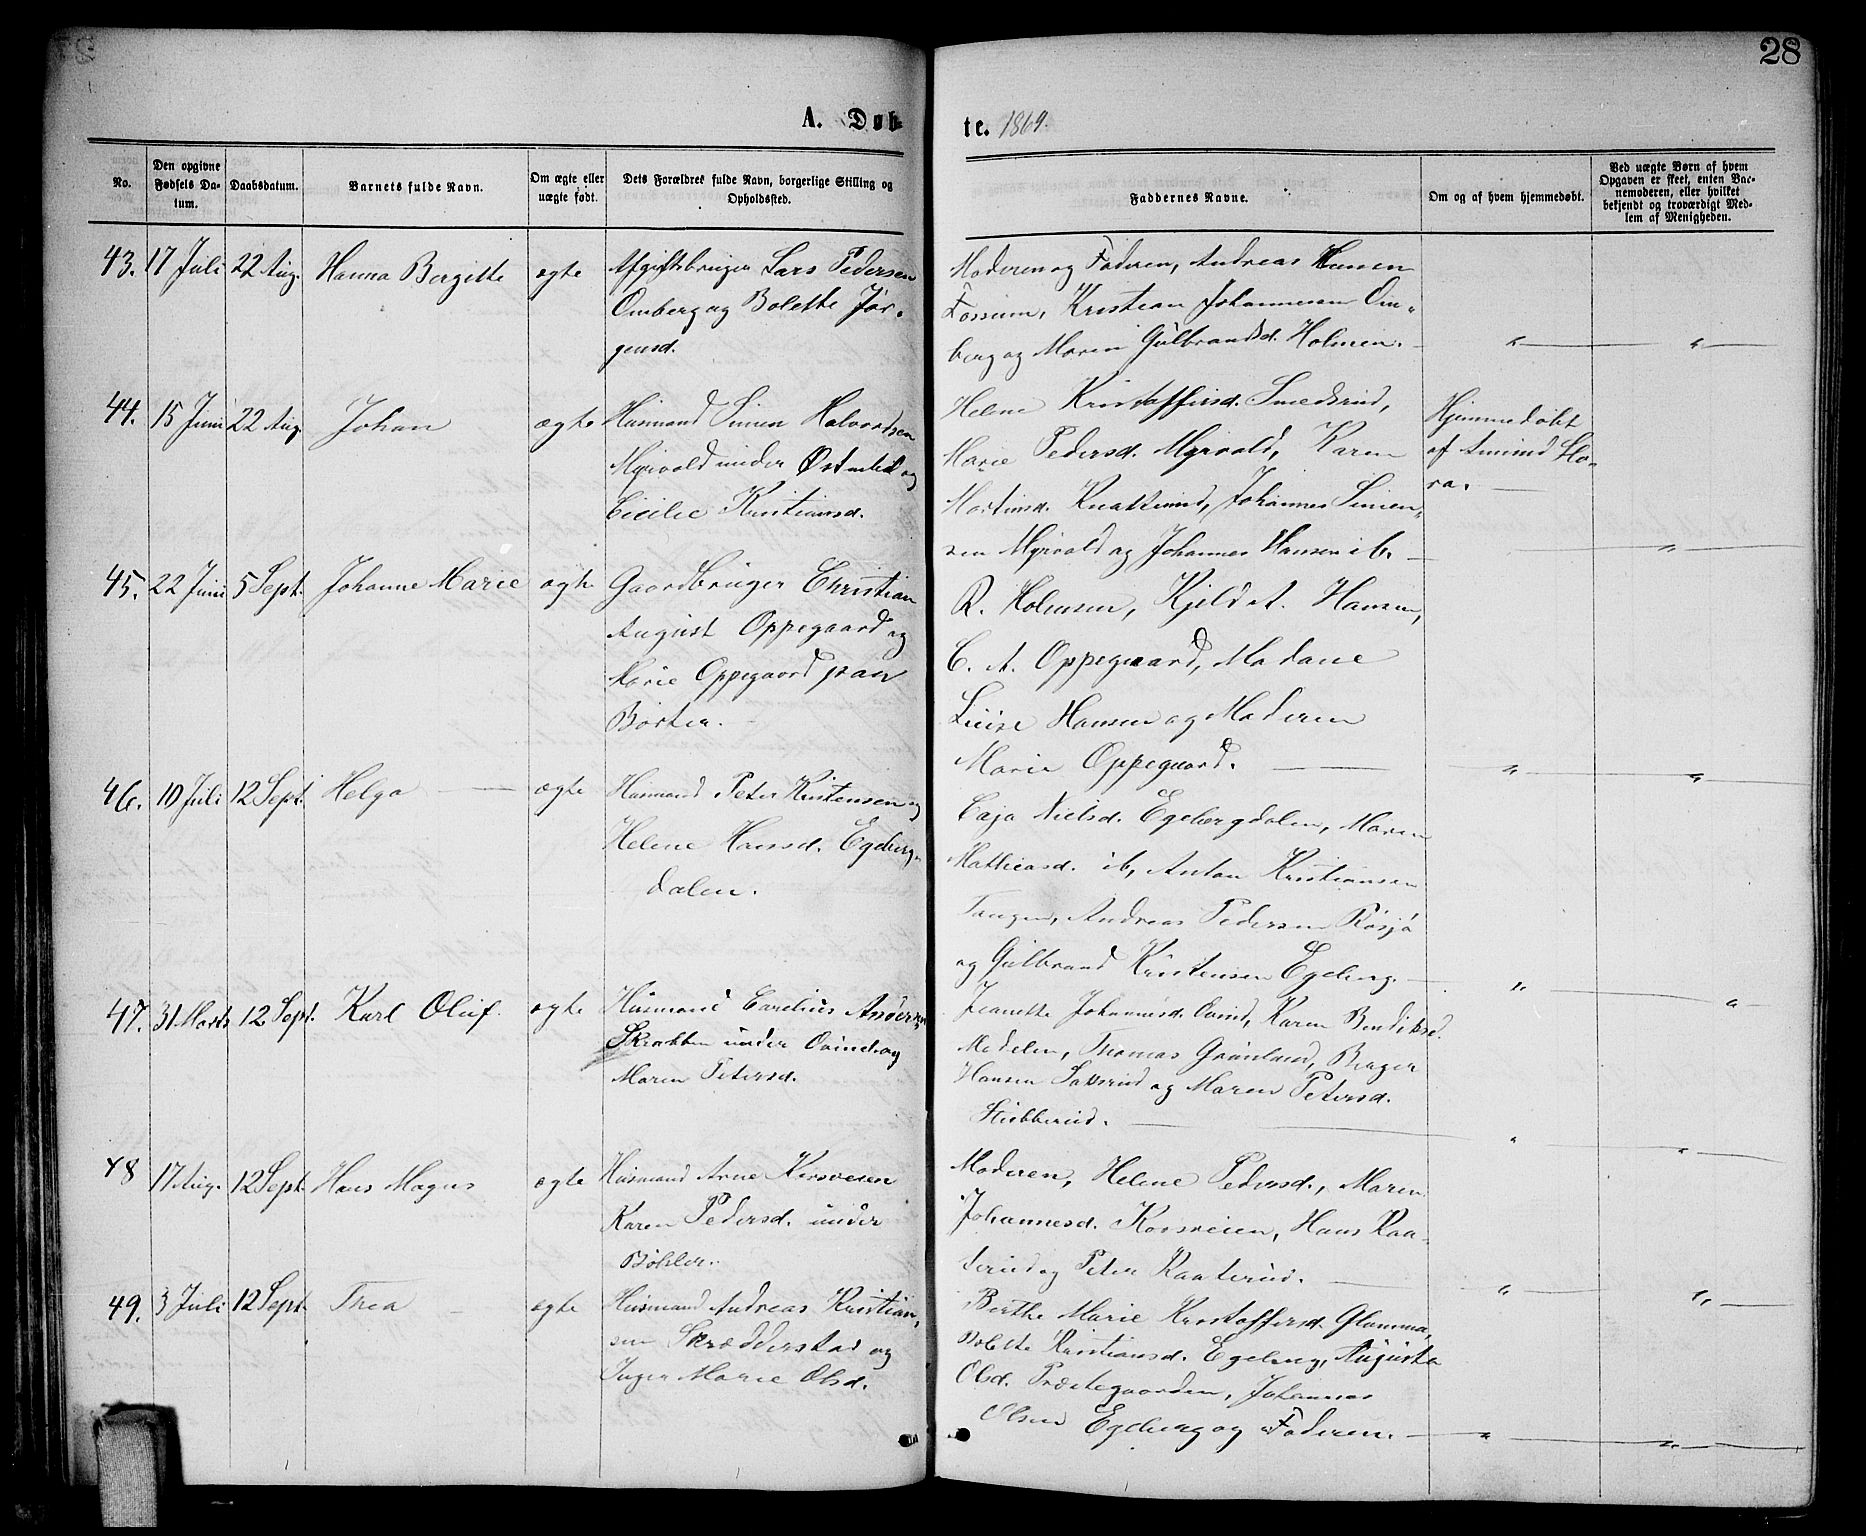 28
A. Døb-
te. 1869.
No.
Den opgivne Fødsels Da-
tum.
Daabsdatum.
Barnets fulde Navn.
Om ægte eller
uægte født.
Dets Forældres fulde Navn, borgerlige Stilling og
Opholdssted.
Faddernes Navne.
Om og af hvem hjemmedøbt.
Ved uægte Børn af hvem
Opgaven er skeet, enten Bar-
nemoderen, eller hvilket
bekjendt og troværdigt Med-
lem af Menigheden.
43. 17 Juli 22 Aug. Hanna Bergitte ægte
Afgiftsbruger Lars Pedersen
Omberg og Bolette Jør-
gensd.
Moderen og Faderen, Andreas Hansen
Fossum, Kristian Johannesen Om-
berg og Maren Gulbrandsd. Holmen. — " — " —
44. 15 Juni 22 Aug. Johan ægte
Husmand Simen Halvordsen
Myrvold under Østenbø og
Cicilie Kristiansd.
Helene Kristoffersd. Smedsrud,
Marie Pedersd. Myrvold, Karen
Martinsd. Knatterud, Johannes Simen-
sen Myrvold og Johannes Hansen ib. — " —
Hjemmedøbt
af Amund Ho-
ra. —
45. 22 Juni 5 Sept. Johanne Marie ægte
Gaardbruger Christian
August Oppegaard og
Marie Oppegaard paa
Børter. —
R. Holmsen, Kjeld A. Hansen,
C. A. Oppegaard, Madame
Luise Hansen og Moderen
Marie Oppegaard. — " — " —
46. 10 Juli 12 Sept. Helga — ægte
Husmand Peter Kristensen og
Helene Hansd. Egeberg-
dalen.
Caja Nielsd. Egebergdalen, Maren
Mathiasd. ib, Anton Kristiansen
Tangen, Andreas Pedersen Røsjø
og Gulbrand Kristensen Egeberg. — " — " —
47. 31 Marts 12 Sept. Karl Oluf. ægte
Husmand Carelius Andersen
Skrabben under Ovind og
Maren Petersd.
Jeanette Johannesd. Ovind, Karen Bendiksd.
Modelen, Thomas Grønland, Birger
Hansen Saxrud og Maren Petersd.
Stubberud. — " — " —
48 17 Aug. 12 Sept. Hans Magnus ægte
Husmand Arne Korsveien
Karen Pedersd. under
Bøhler.
Moderen, Helene Pedersd., Maren
Johannesd. Korsveien, Hans Raa-
terud og Peter Raaterud. — " — " —
49. 3 Juli 12 Sept. Thea — ægte
Husmand Andreas Kristian-
sen Skrædderstad og
Inger Marie Olsd.
Berthe Marie Kristoffersd. Glomma,
Bolette Kristiansd. Egeberg, Augusta
Olsd. Præstegaarden, Johannes
Olsen Egeberg og Faderen. — " — " —